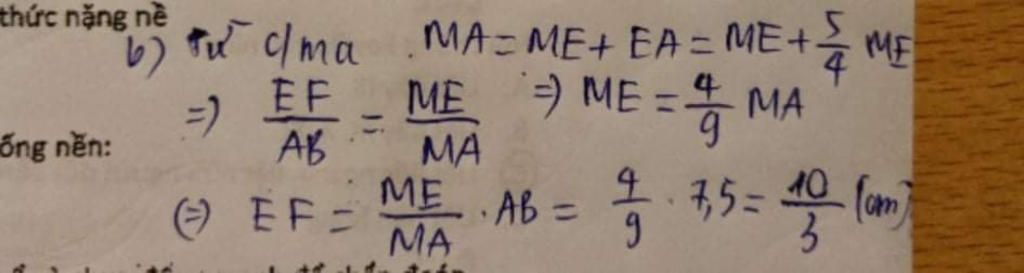 thức nặng nề
b) Từ c/ma MA = ME + EA = ME + 5/4 ME
=> EF/AB = ME/MA => ME = 4/9 MA
ống nền:
(=) EF = ME/MA . AB = 4/9 . 7,5 = 10/3 (cm)